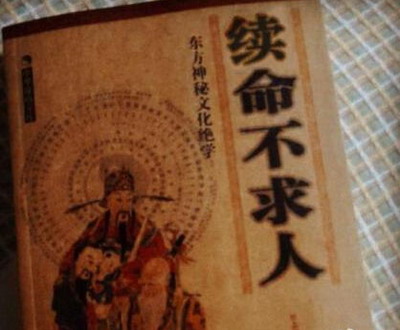 续命不求人
东方神秘文化绝学